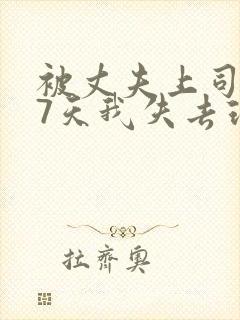 被丈夫上司
7天我失去
拉齐奥